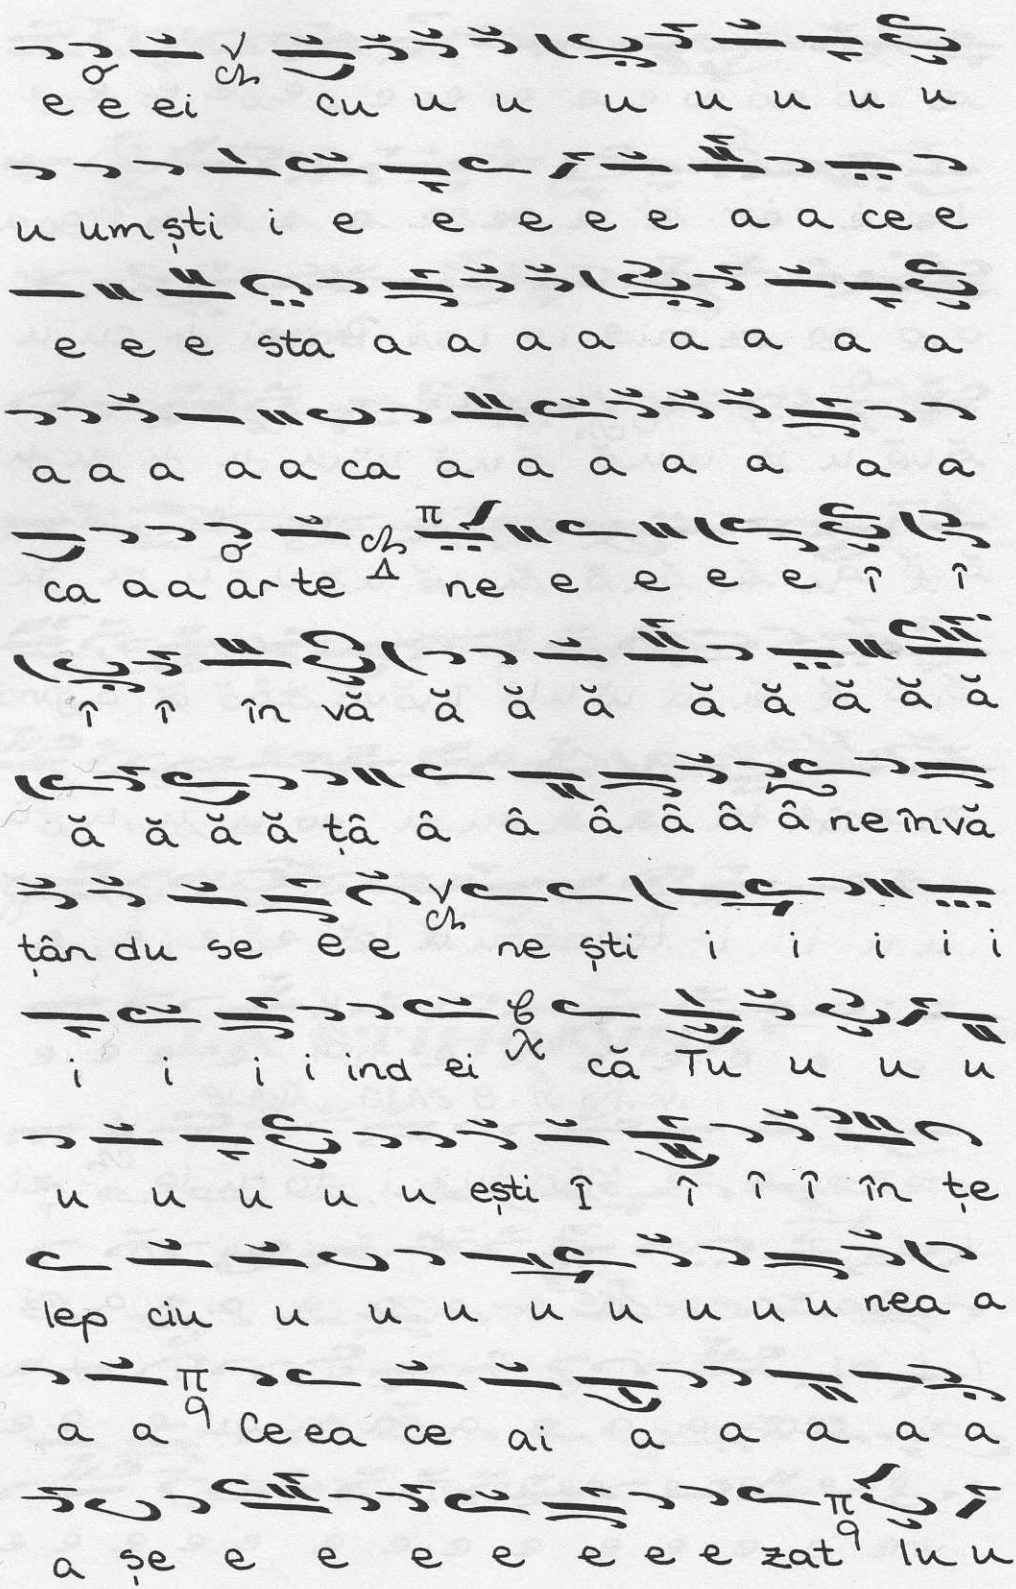 e e ei cu u u u u u u u
u um ști i e e e e e a a ce e
e e e sta a a a a a a a a
a a a a a ca a a a a a a a
ca a a ar te ne e e e e î î
î î în vă ă ă ă ă ă ă ă ă
ă ă ă ă ță â â â â â â ne învă
țân du se e e ne ști i i i i i
i i i i ind ei că Tu u u u
u u u u u ești Î î î î în țe
lep ciu u u u u u u u u nea a
a a Ce ea ce ai a a a a a
a șe e e e e e e e zat lu u